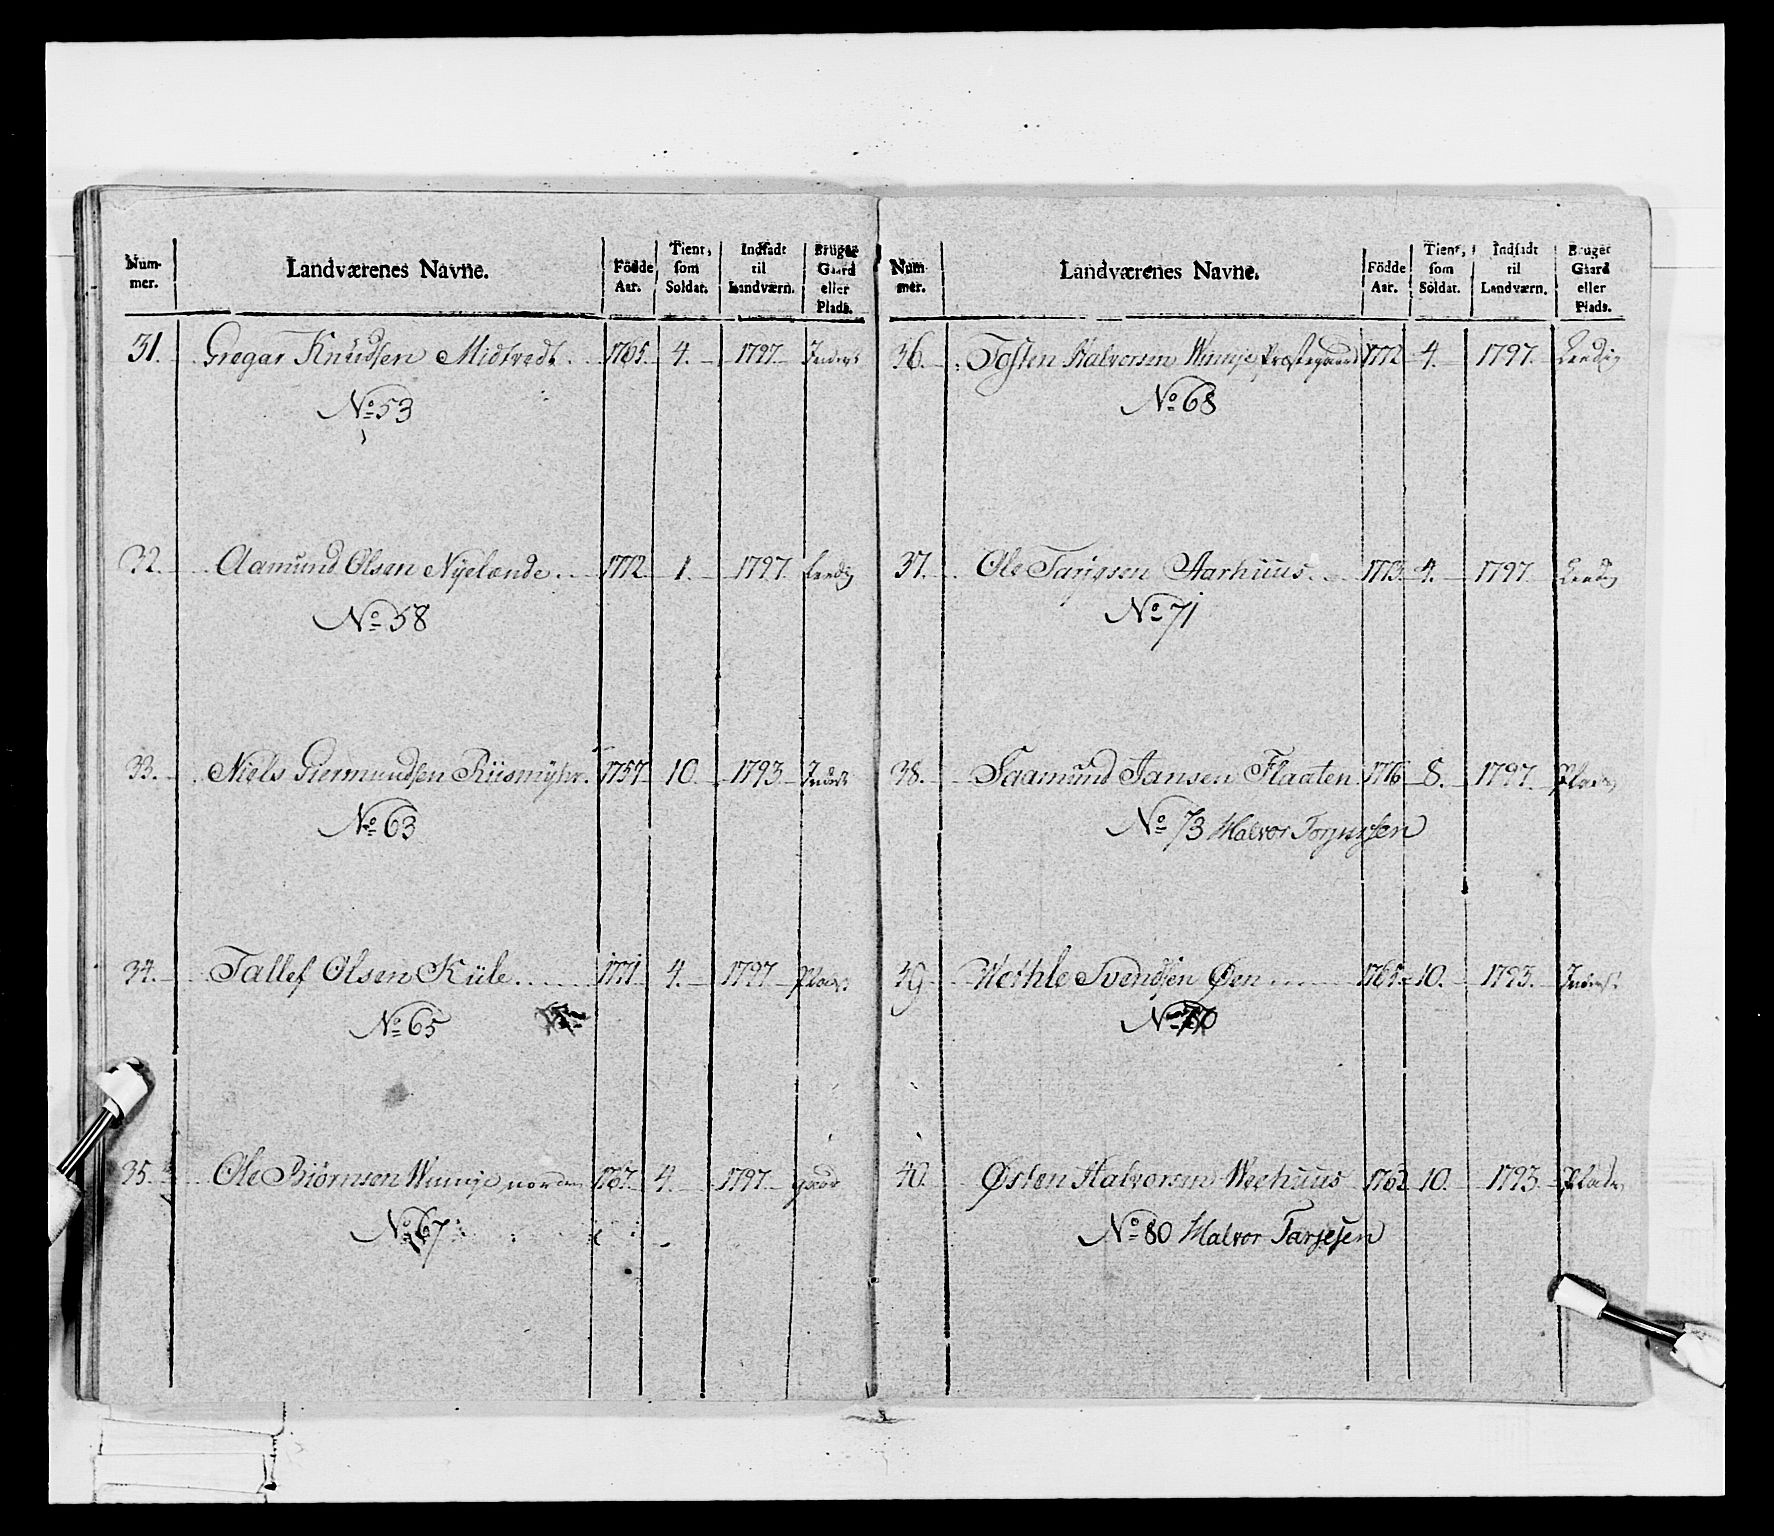 Num-
mer.
Landværenes Navne.
Födde
Aar.
Tient,
som
Soldat.
Indsadt
til
Landværn.
Bruger
Gaard
eller
Plads.
31. Gregar Knudsen Midtvedt. 1765. 4. 1797. Inderst
No 53
32. Aamund Olsen Nyelænde. 1772 1. 1797 Leedig
No 58
33. Niels Giermundsen Riismyhr. 1757 10. 1793. Inderst
No 63
34. Tallef Olsen Kiile. 1771 4. 1797 Plads
No 65
35. Ole Biörnsen Winnje norden 1767. 4. 1797. gaard
No 67
Num-
mer.
Landværenes Navne.
Födde
Aar.
Tient,
som
Soldat.
Indsadt
til
Landværn.
Bruger
Gaard
eller
Plads.
36. Tosten Halvorsen Winnje Præstegaard 1772 4. 1797. Leedig
No 68
37. Ole Tarjesen Aarhuus. 1773. 4. 1797 Leedig
No 71
38. Saamund Jansen Flaaten 1776 8. 1797. Plads
No 73 Halvor Torjussen
39. Wethle Svendsen Øen 1765. 10. 1793. Inderst
No 70
40. Østen Halvorsen Weehuus 1762 10. 1793. Plads
No 80 Halvor Tarjesen